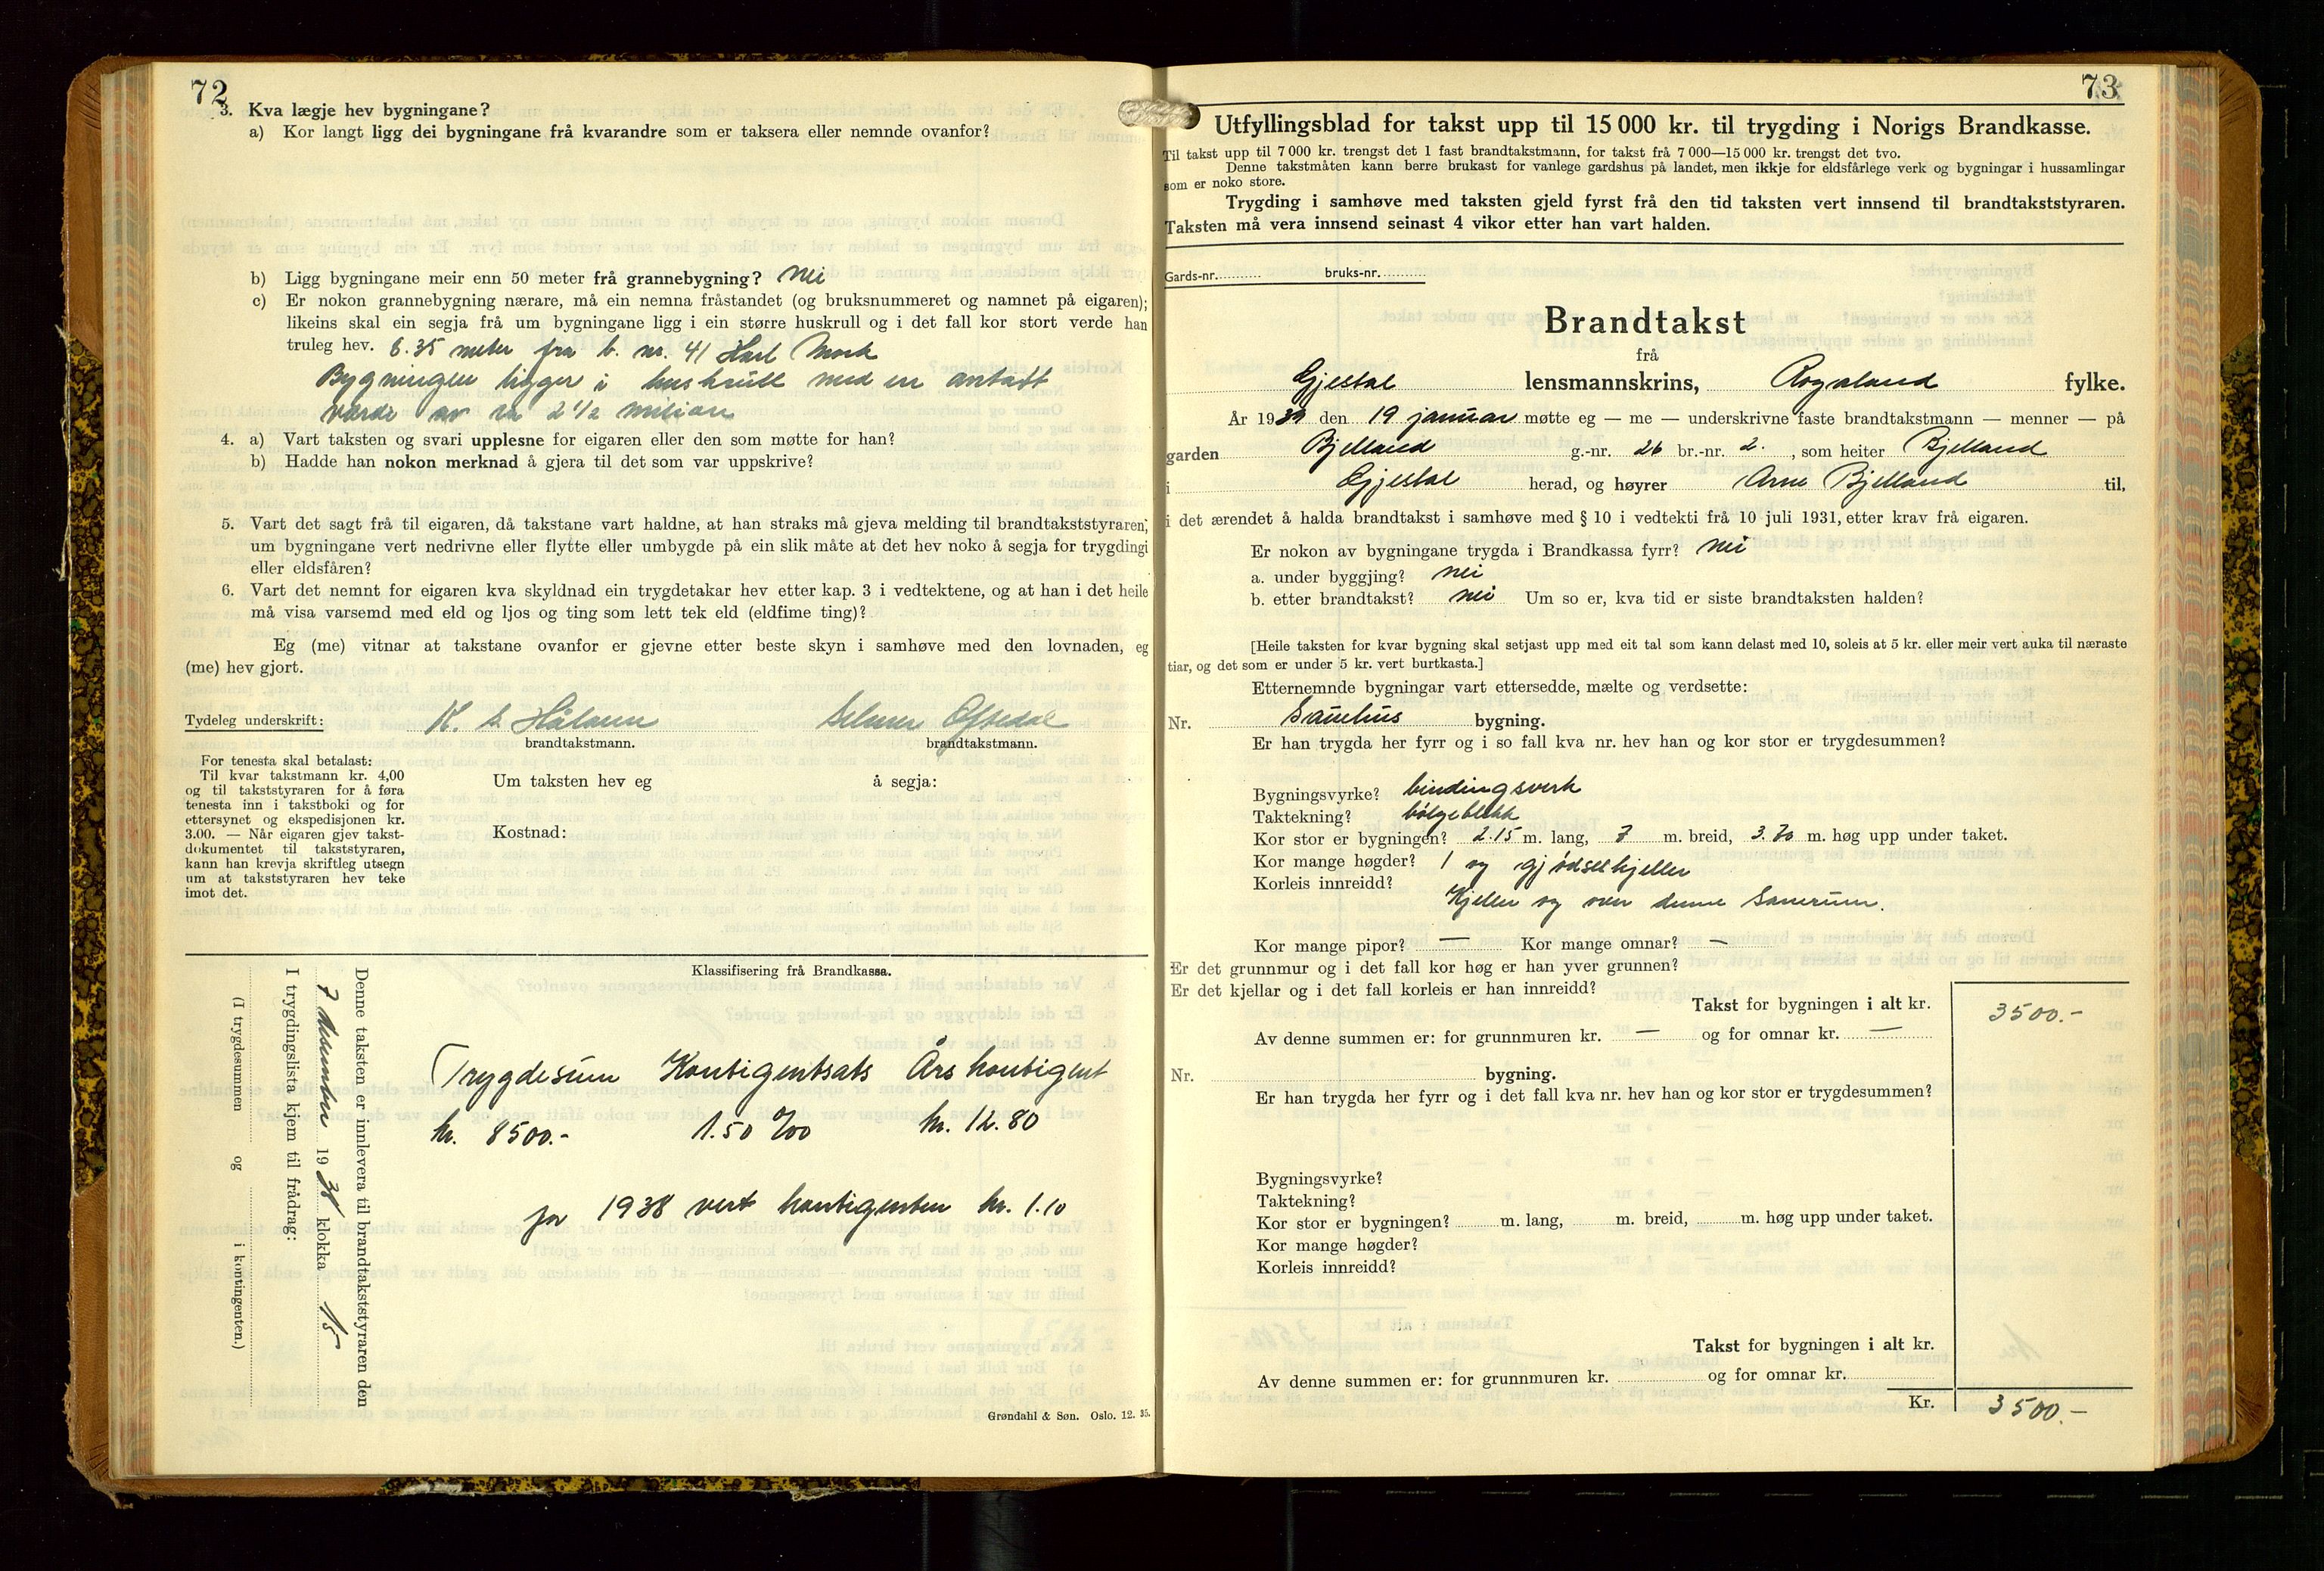 72
3. Kva lægje hev bygningane?
a) Kor langt ligg dei bygningane frå kvarandre som er taksera eller nemnde ovanfor?
b) Ligg bygningane meir enn 50 meter frå grannebygning? Nei
c) Er nokon grannebygning nærare, må ein nemna fråstandet (og bruksnummeret og namnet på eigaren);
likeins skal ein segja frå um bygningane ligg i ein større huskrull og i det fall kor stort verde han
truleg hev. 8.35 meter fra b. nr. 41 Karl Mork
Bygningen ligger i huskrull med en antatt
værdi av ca 2 1/2 milion
4. a) Vart taksten og svari upplesne for eigaren eller den som møtte for han?
b) Hadde han nokon merknad å gjera til det som var uppskrive?
5. Vart det sagt frå til eigaren, då takstane vart haldne, at han straks må gjeva melding til brandtakststyraren,
um bygningane vert nedrivne eller flytte eller umbygde på ein slik måte at det hev noko å segja for trygdingi
eller eldsfåren?
6. Vart det nemnt for eigaren kva skyldnad ein trygdetakar hev etter kap. 3 i vedtektene, og at han i det heile
må visa varsemd med eld og ljos og ting som lett tek eld (eldfime ting)?
Eg (me) vitnar at takstane ovanfor er gjevne etter beste skyn i samhøve med den lovnaden, eg
(me) hev gjort.
Tydeleg underskrift: Håland Oftedal
brandtakstmann. brandtakstmann.
For tenesta skal betalast:
Til kvar takstmann kr. 4,00
og til takststyraren for å føra
tenesta inn i takstboki og for
ettersynet og ekspedisjonen kr.
3.00. — Når eigaren gjev takst-
dokumentet til takststyraren,
kann han krevja skriftleg utsegn
um at takststyraren hev teke
imot det.
Um taksten hev eg å segja:
Kostnad:
Denne taksten er innlevera til brandtakststyraren den
7 desember 1938 klokka 15
I trygdingslista kjem til frådrag:
(I trygdesummen og i kontingenten.)
Klassifisering frå Brandkassa.
Trygdesum Kontigentsats Års kontigent
kr. 8500.- 1.50 ‰ kr. 12.80
for 1938 vert kontigenten kr. 1.10
Grøndahl & Søn. Oslo. 12. 35.
73
Utfyllingsblad for takst upp til 15 000 kr. til trygding i Norigs Brandkasse.
Til takst upp til 7 000 kr. trengst det 1 fast brandtakstmann, for takst frå 7 000—15 000 kr. trengst det tvo.
Denne takstmåten kann berre brukast for vanlege gardshus på landet, men ikkje for eldsfårlege verk og bygningar i hussamlingar
som er noko store.
Trygding i samhøve med taksten gjeld fyrst frå den tid taksten vert innsend til brandtakststyraren.
Taksten må vera innsend seinast 4 vikor etter han vart halden.
Gards-nr. bruks-nr.
Brandtakst
frå
Gjestal lensmannskrins, Rogaland fylke.
År 1939 den 19 januar møtte eg — me — underskrivne faste brandtakstmann — menner — på
garden Bjelland g.-nr. 26 br.-nr. 2. , som heiter Bjelland
i Gjestal herad, og høyrer Arne Bjelland til,
i det ærendet å halda brandtakst i samhøve med § 10 i vedtekti frå 10 juli 1931, etter krav frå eigaren.
Er nokon av bygningane trygda i Brandkassa fyrr? nei
a. under byggjing? nei
b. etter brandtakst? nei Um so er, kva tid er siste brandtaksten halden?
[Heile taksten for kvar bygning skal setjast upp med eit tal som kann delast med 10, soleis at 5 kr. eller meir vert auka til næraste
tiar, og det som er under 5 kr. vert burtkasta.]
Etternemnde bygningar vart ettersedde, mælte og verdsette:
Nr. Sauehus bygning.
Er han trygda her fyrr og i so fall kva nr. hev han og kor stor er trygdesummen?
Bygningsvyrke? bindingsverk
Taktekning? bølgeblikk
Kor stor er bygningen? 2.15 m. lang, 7 m. breid, 3.70 m. høg upp under taket.
Kor mange høgder? 1 og gjødselkjeller
Korleis innreidd?
Kjeller og over denne Sauerum.
Kor mange pipor? — Kor mange omnar? —
Er det grunnmur og i det fall kor høg er han yver grunnen?
Er det kjellar og i det fall korleis er han innreidd?
Takst for bygningen i alt kr. 3500.-
Av denne summen er: for grunnmuren kr. — og for omnar kr. —
Nr. bygning.
Er han trygda her fyrr og i det fall kva nr. hev han og kor stor er trygdesummen?
Bygningsvyrke?
Taktekning?
Kor stor er bygningen? m. lang, m. breid, m. høg upp under taket.
Kor mange høgder?
Korleis innreidd?
Takst for bygningen i alt kr.
Av denne summen er: for grunnmuren kr. og for omnar kr.
Kr. 3500.-